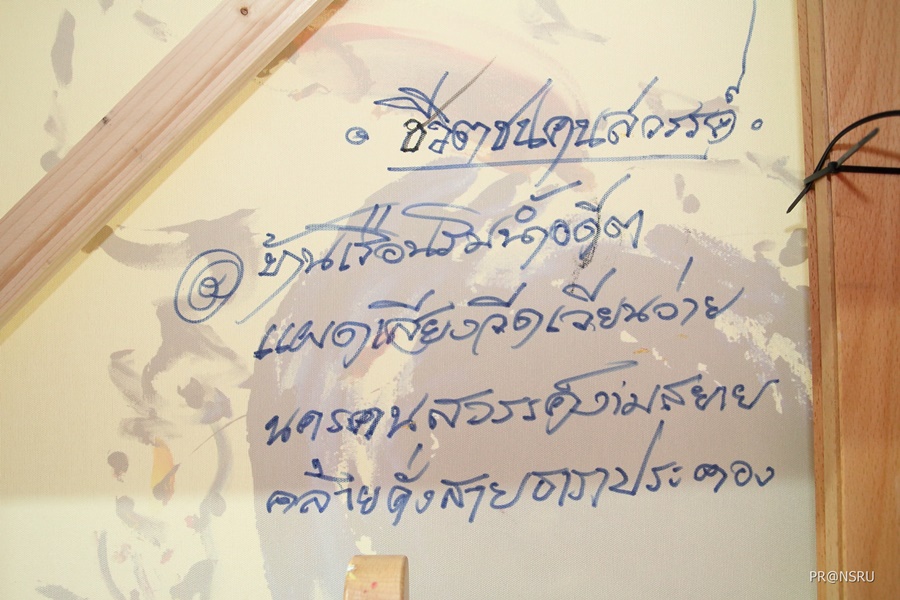 • ชีวิตชนคนสวรรค์ •
บ้านเรือนริมน้ำอดีต
แผดเสียง ว่าย
นครคนสวรรค์งามสยาย
คล้ายดั่งสายธาราประคอง
PR@NSRU